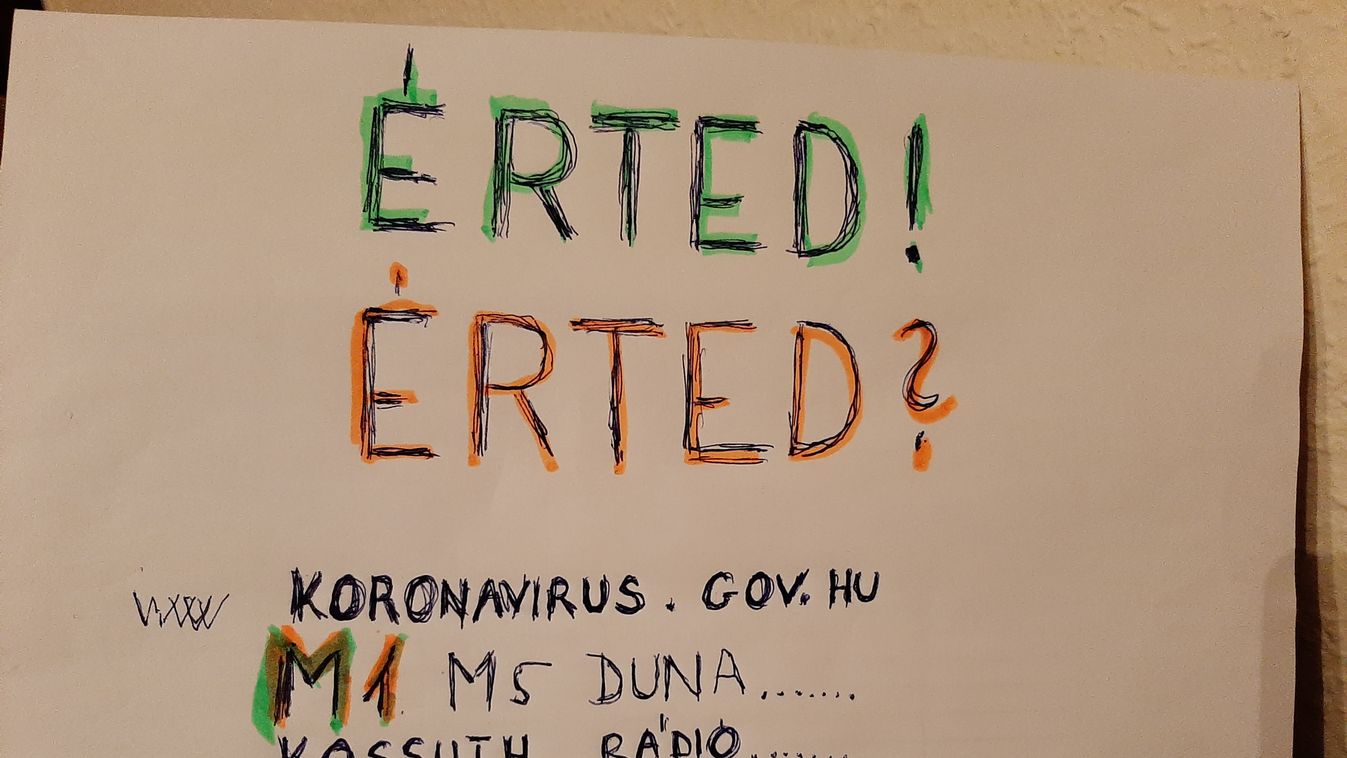 ÉRTED!
ÉRTED?
www KORONAVIRUS.GOV.HU
M1 M5 DUNA.......
KOSSUTH RÁDIÓ.......